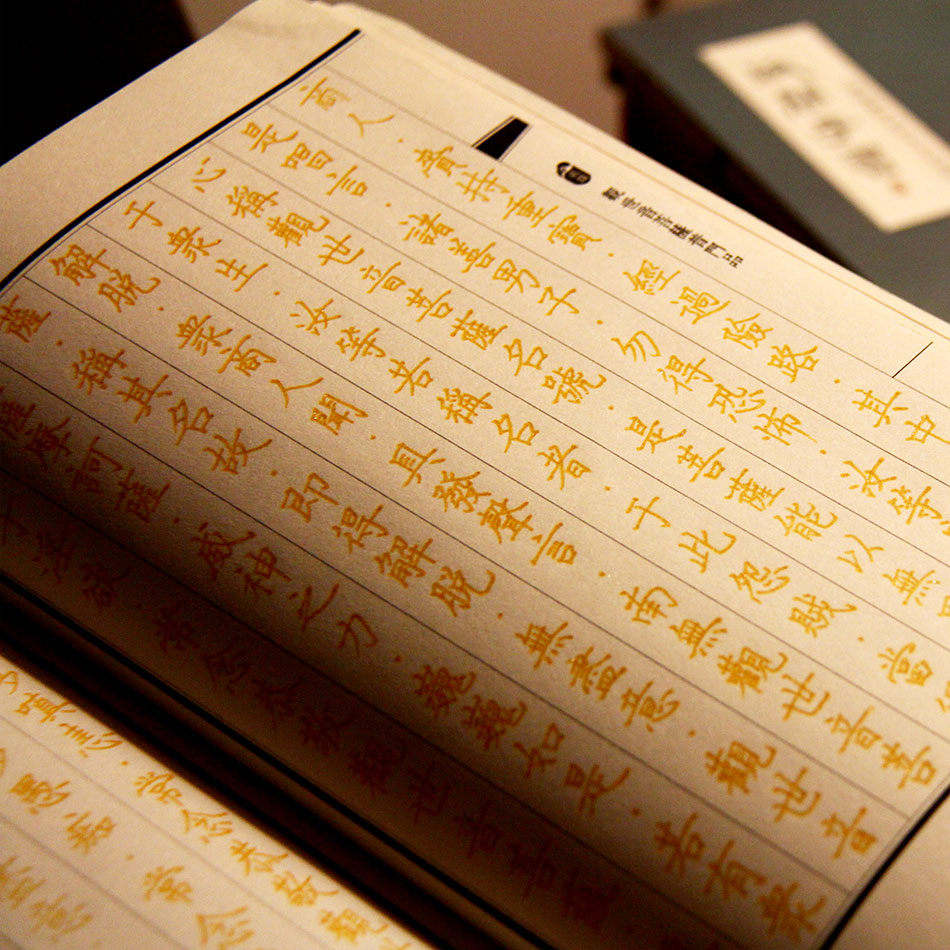 觀世音菩薩普門品
商人．賫持重寶．經過險路．其中
是唱言．諸善男子．勿得恐怖．汝等
心稱觀世音菩薩名號．是菩薩能以無
于衆生．汝等若稱名者．于此怨賊．當
解脫．衆商人聞．具發聲言．南無觀世音菩
薩．稱其名故．即得解脫．無盡意．觀世音
薩摩訶薩．威神之力．巍巍如是．若有衆
于淫欲．常念恭敬觀世音菩薩
瞋恚．常念恭敬觀
愚癡．常念